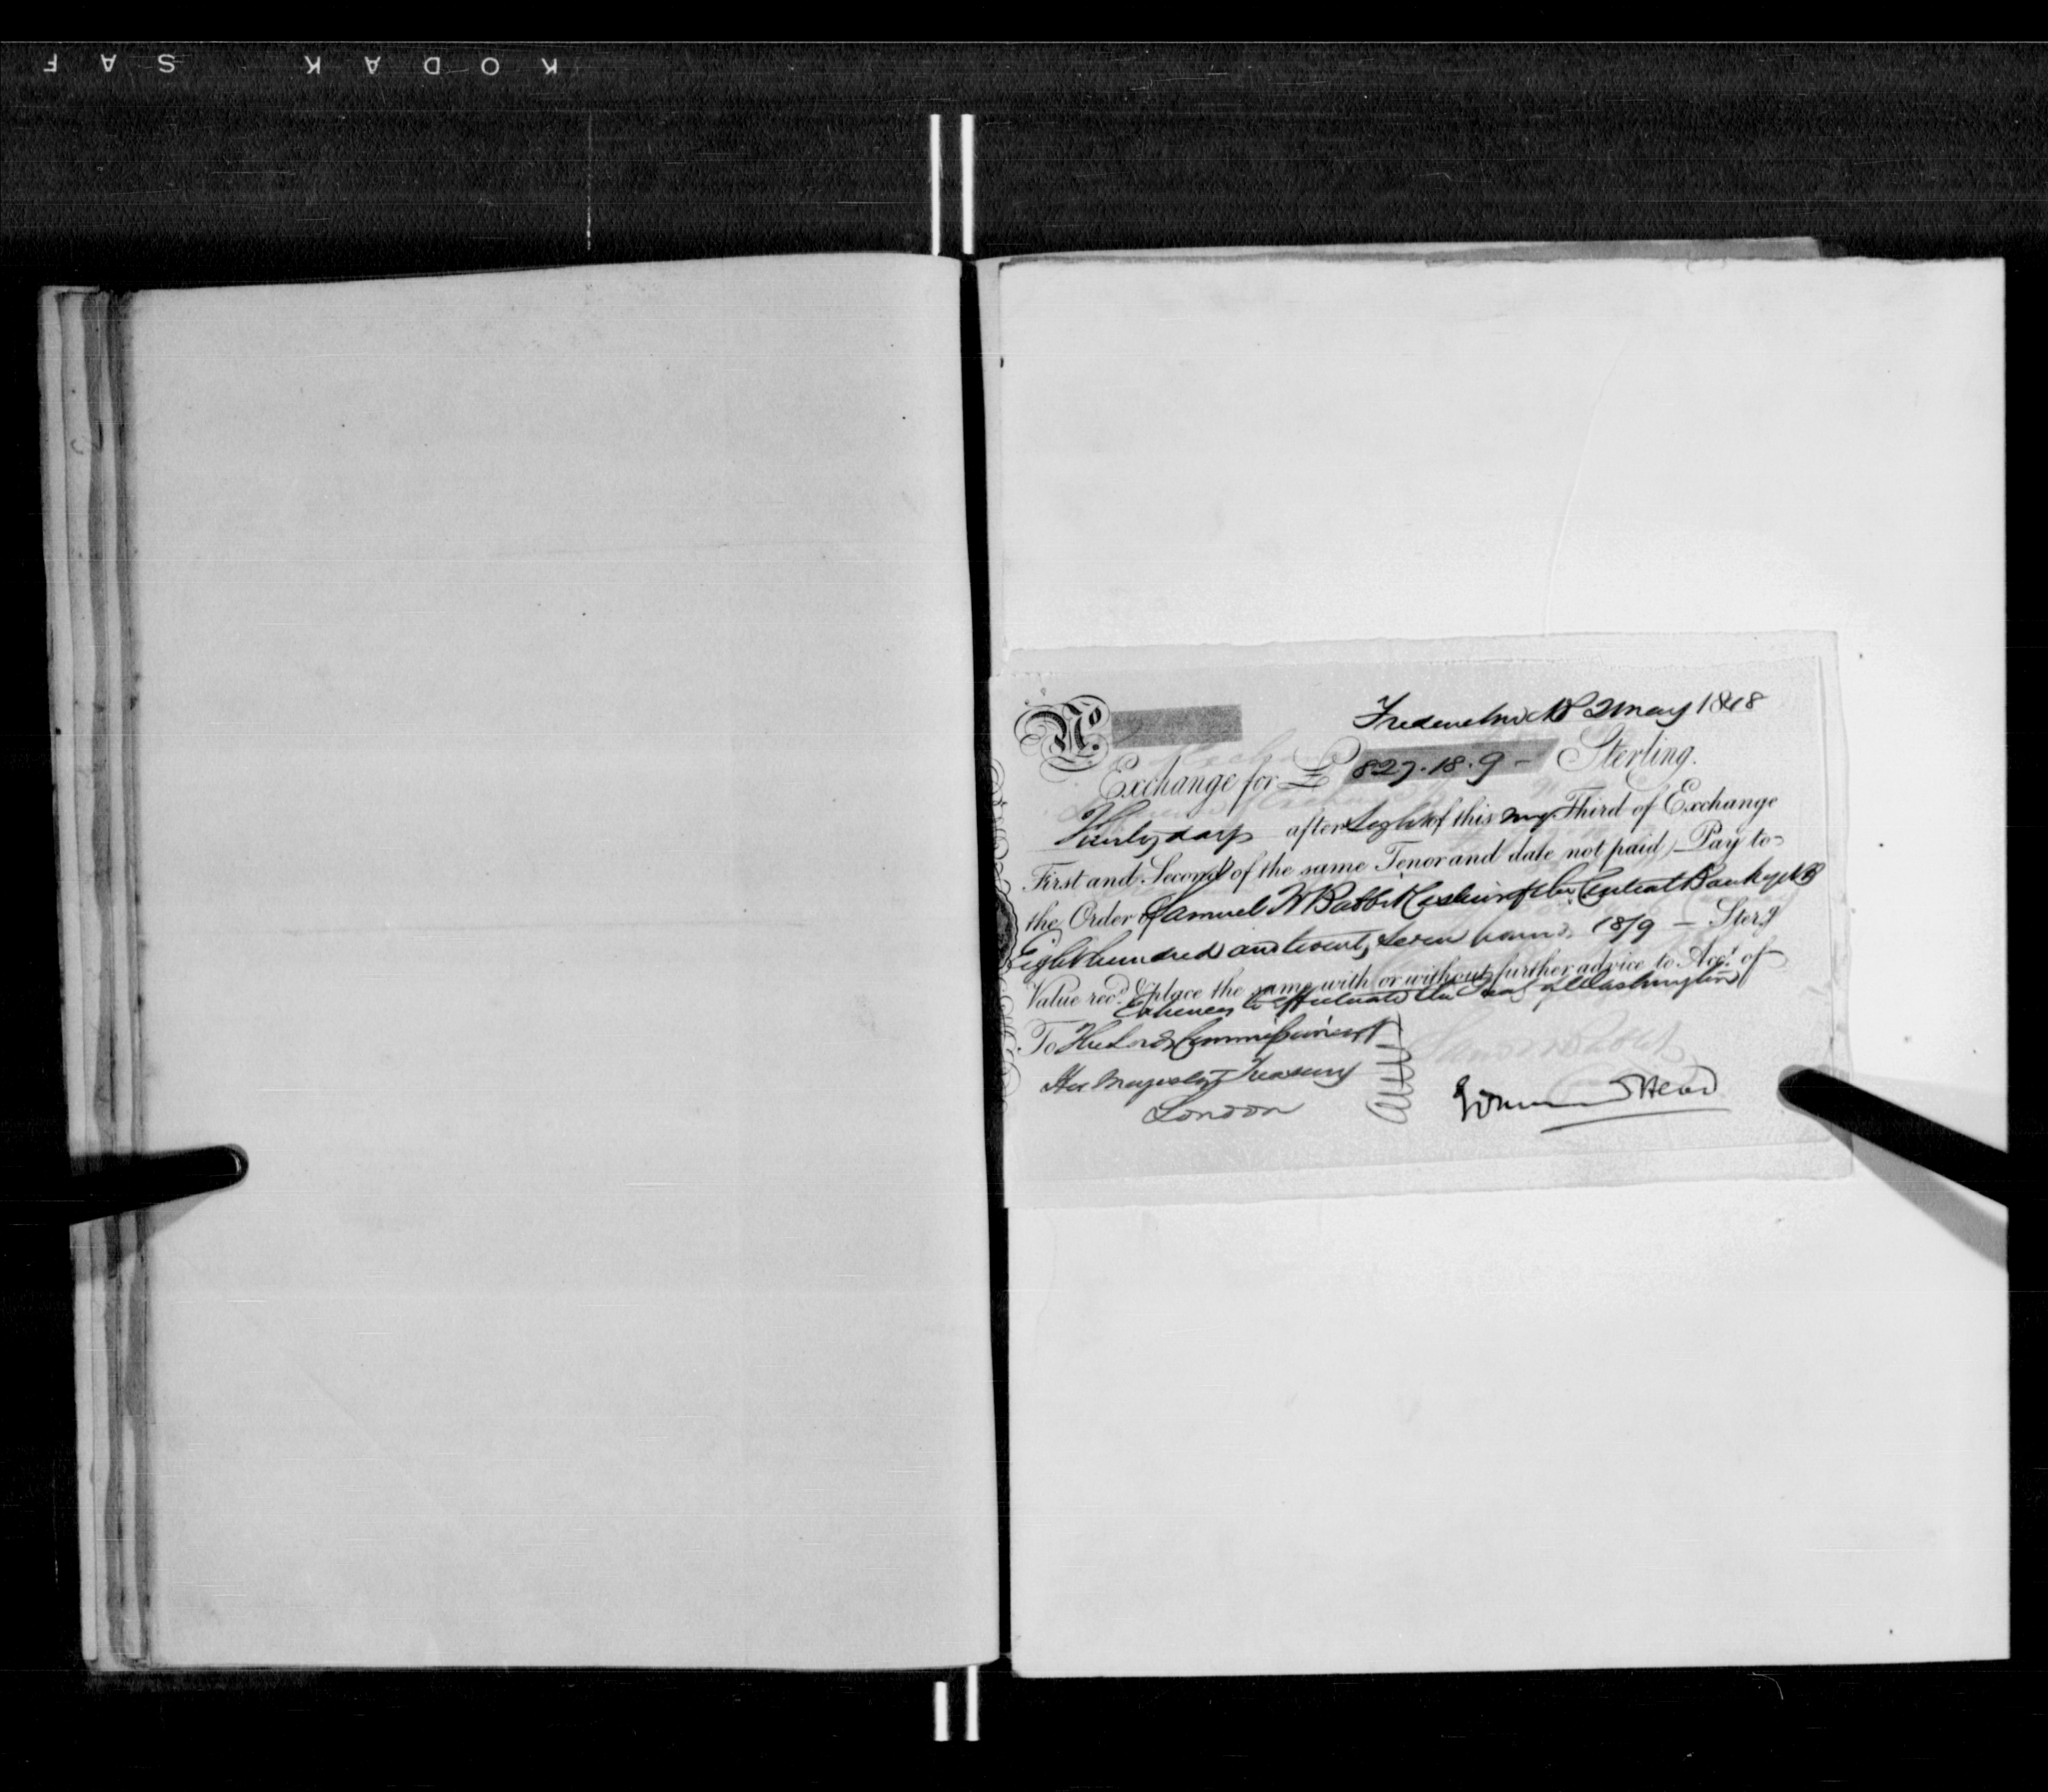 KODAK SAF
Fredericton NB 2 May 1848
No.
Exchange for £ 827.18.9 - Sterling.
Thirty days after Sight of this my Third of Exchange
First and Second of the same Tenor and date not paid) Pay to
the Order of Samuel W Babbit Cashier of the Central Bank of NB
Eight hundred and twenty Seven pounds 18/9 — Sterg
Value recd. & place the same with or without further advice to Acct. of
Expenses to effectuate the Treaty of Washington
To The Lords Commissioners of
Her Majestys Treasury
London
Head